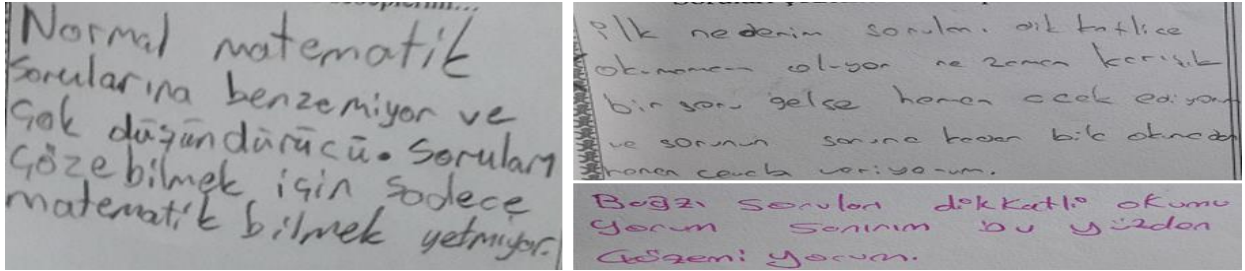 Normal matematik
sorularına benzemiyor ve
çok düşündürücü. Soruları
çözebilmek için sadece
matematik bilmek yetmiyor.
ilk nedenim soruları dikkatlice
okumamam oluyor ne zaman karışık
bir soru gelse hemen acele ediyorum
ve sorunun sonuna kadar bile okumadan
hemen cevabı veriyorum.
Bazı soruları dikkatli okumu
yorum sanırım bu yüzden
çözemi yorum.